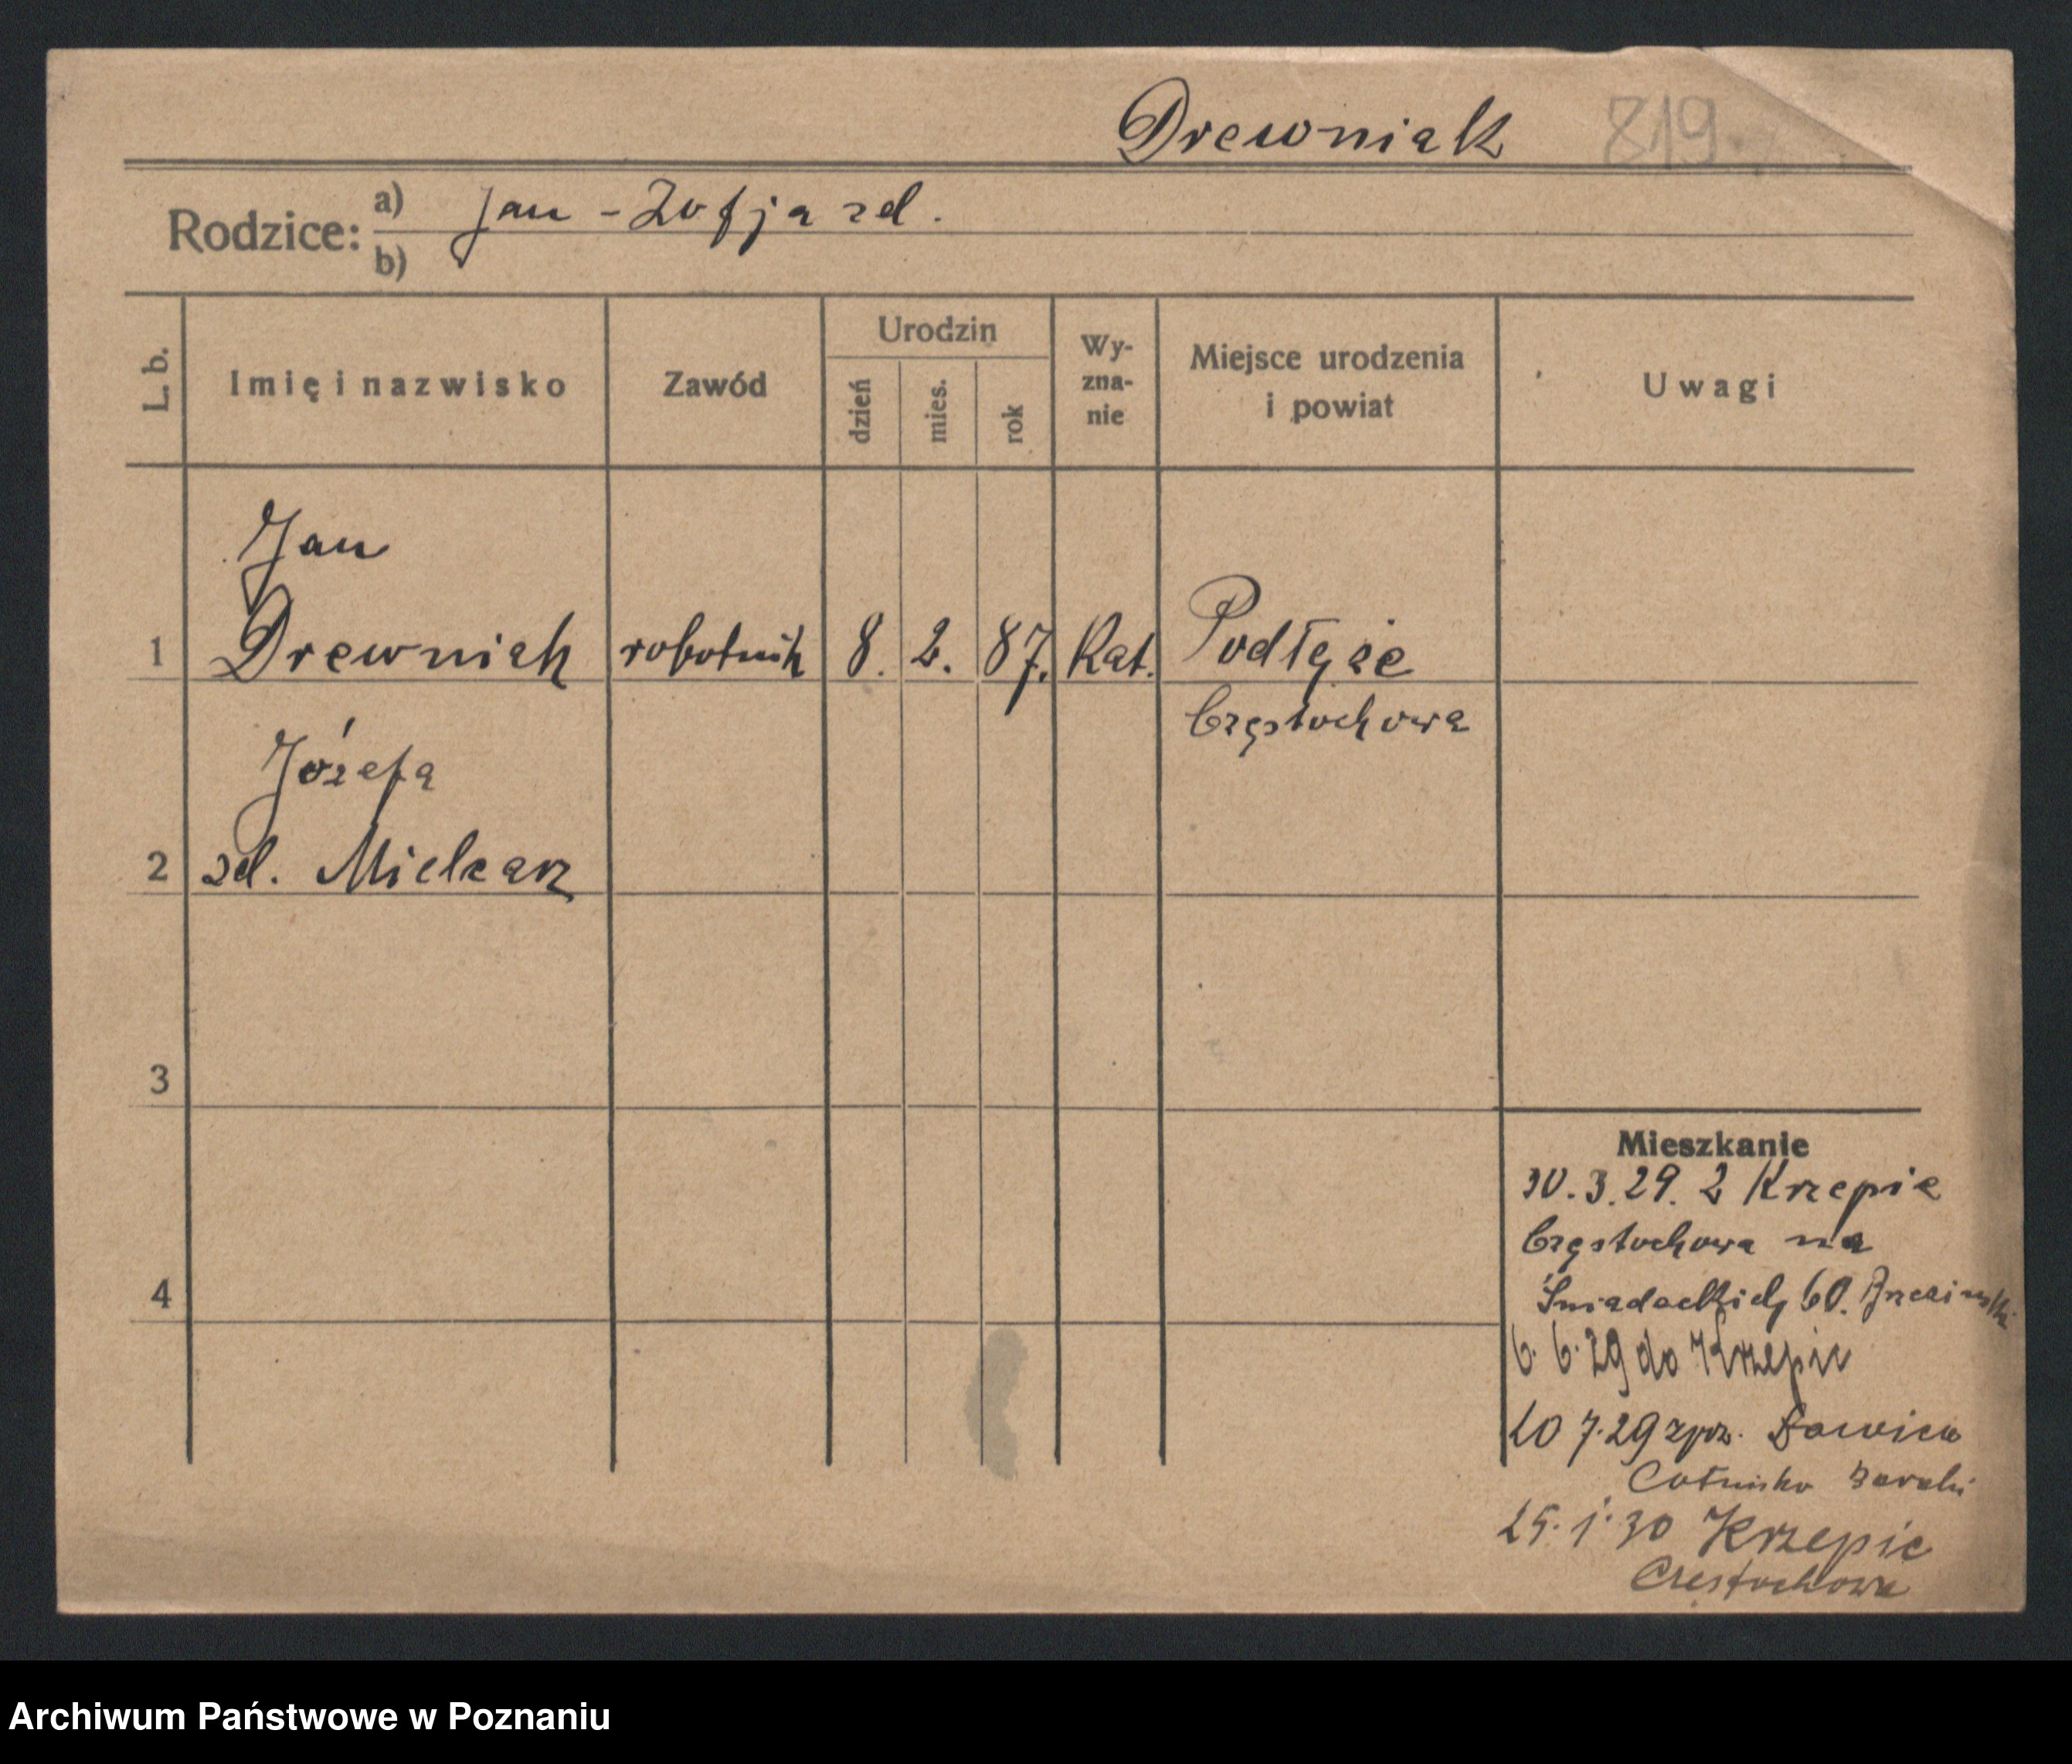 Drewniak 819.
Rodzice: a) Jan - Zofja zd.
b)
L. b. Imię i nazwisko Zawód Urodzin dzień mies. rok Wy-zna-nie Miejsce urodzenia i powiat Uwagi
Jan
1 Drewniak robotnik 8. 2. 87. Kat. Podłęże
Częstochowa
Józefa
2 zd. Mielcarz
3
Mieszkanie
30.3.29. z Krzepic
Częstochowa na
4 Śniadeckich 60.
6.6.29 do Krzepic
10 7.29 Ławica
Baraki
25.1.30 Krzepic
Częstochowa
Archiwum Państwowe w Poznaniu